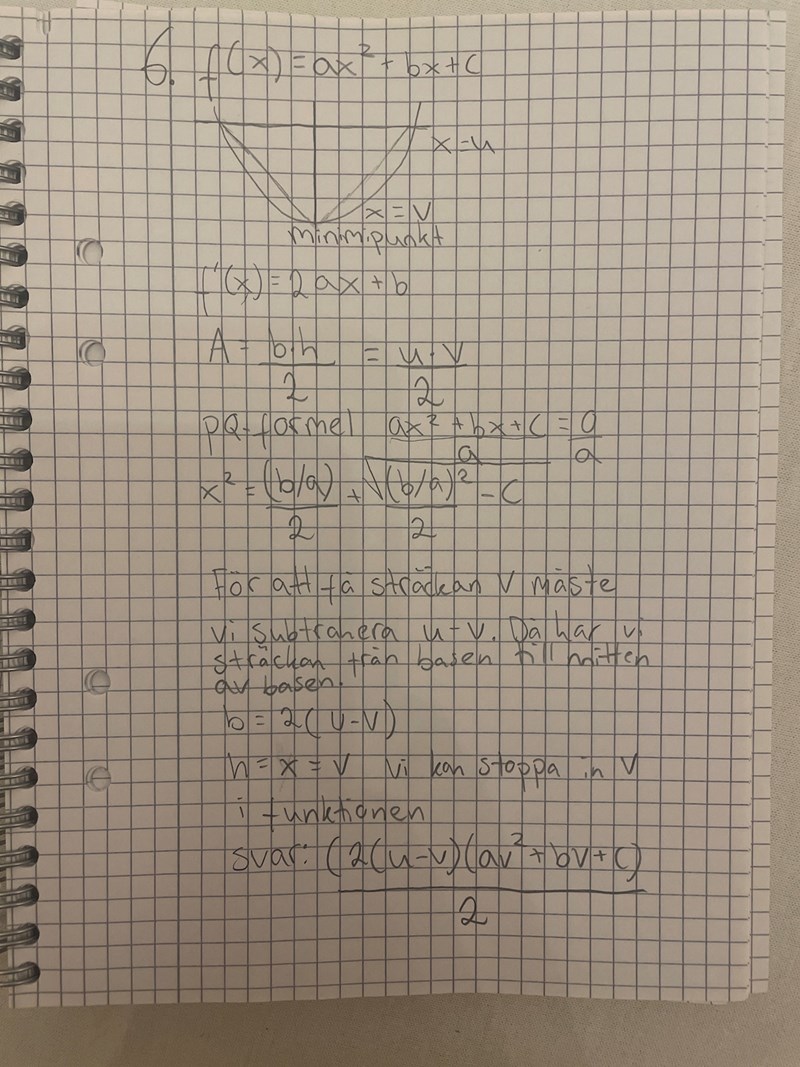 6. f(x) = ax² + bx + c
x = u
x = v
minimipunkt
f'(x) = 2ax + b
A = b·h/2 = u·v/2
PQ-formel (ax² + bx + c)/a = 0/a
x² = (b/a)/2 + √((b/a)²/2 - c)
För att få sträckan v måste
vi subtrahera u-v. Då har vi
sträckan från basen till mitten
av basen.
b = 2(u-v)
h = x = v Vi kan stoppa in v
i funktionen
svar: (2(u-v)(av² + bv + c)/2